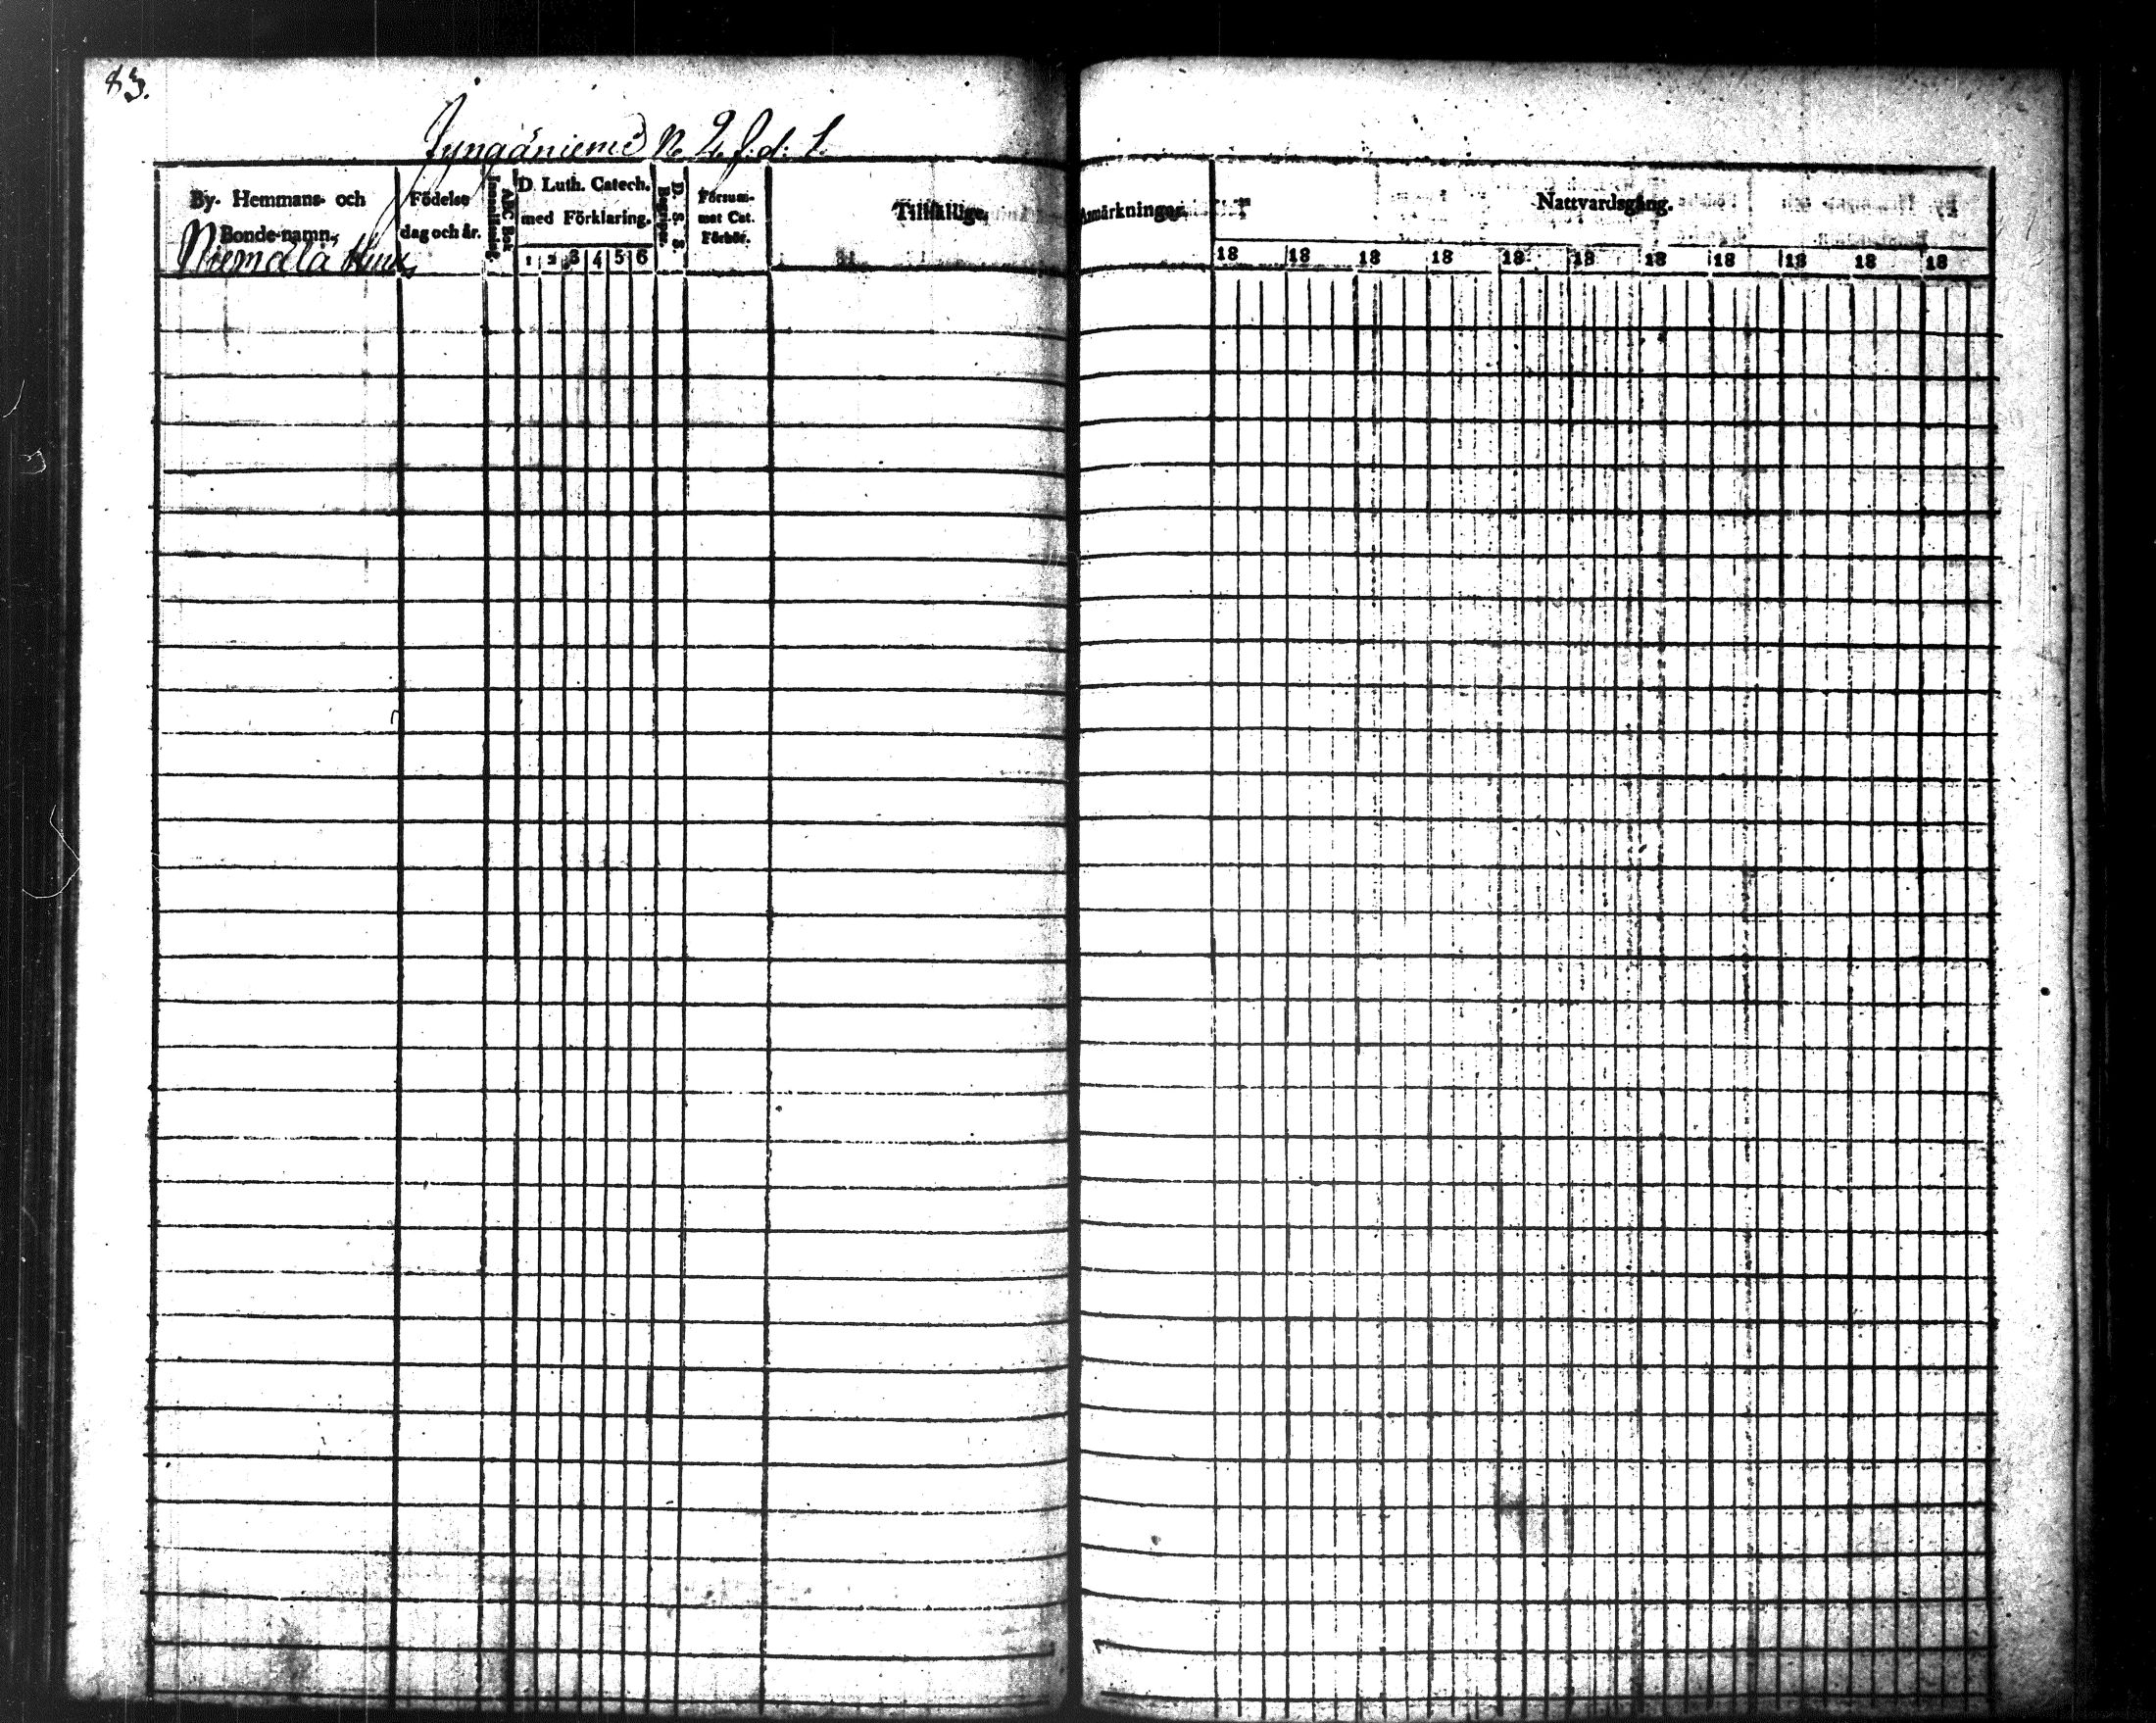 83.
Jyngäniemi N. 2. f: d: 1.
By- Hemmans- och Bonde-namn.
Niemelä
Födelse dag och år.
ABC Bok Innanläsning
D. Luth. Catech. med Förklaring.
1 2 3 4 5 6
D. S. S. Begrepp.
Försummat Cat. Förhör.
Tillfällige
Anmärkningar.
Nattvardsgång.
18 18 18 18 18 18 18 18 18 18 18